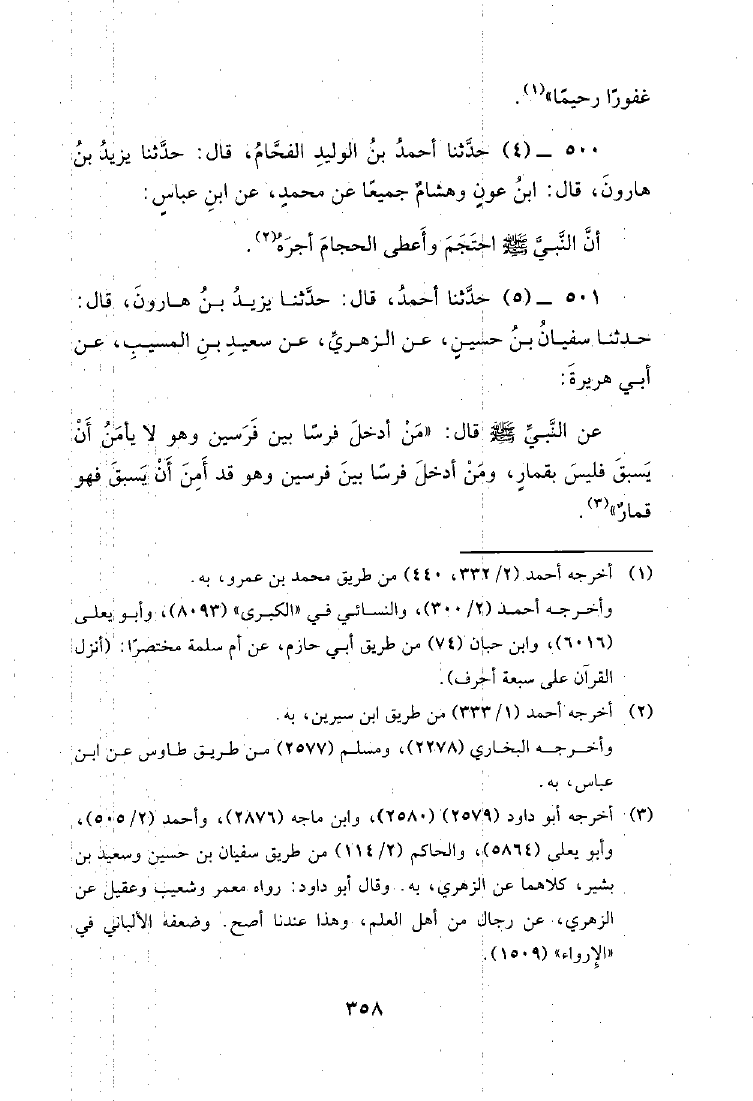 غفورًا رحيمًا»(١).
٥٠٠ ــ (٤) حدَّثنا أحمدُ بنُ الوليدِ الفحَّامُ، قال: حدَّثنا يزيدُ بنُ
هارونَ، قال: ابنُ عونٍ وهشامٌ جميعًا عن محمدٍ، عن ابنِ عباسٍ:
أنَّ النَّبيَّ ﷺ احتَجَمَ وأَعطى الحجامَ أجرَهُ(٢).
٥٠١ ــ (٥) حدَّثنا أحمدُ، قال: حدَّثنا يزيدُ بنُ هارونَ، قال:
حدثنا سفيانُ بنُ حسينٍ، عن الزهريِّ، عن سعيدِ بنِ المسيبِ، عن
أبي هريرةَ:
عن النَّبيِّ ﷺ قال: «مَنْ أدخلَ فرسًا بين فَرَسين وهو لا يأمَنُ أَنْ
يَسبقَ فليسَ بقمارٍ، ومَنْ أدخلَ فرسًا بينَ فرسين وهو قد أَمِنَ أَنْ يَسبقَ فهو
قمارٌ»(٣).
(١) أخرجه أحمد (٢/ ٣٣٢، ٤٤٠) من طريق محمد بن عمرو، به.
وأخرجه أحمد (٢/ ٣٠٠)، والنسائي في «الكبرى» (٨٠٩٣)، وأبو يعلى
(٦٠١٦)، وابن حبان (٧٤) من طريق أبي حازم، عن أم سلمة مختصرًا: (أنزل
القرآن على سبعة أحرف).
(٢) أخرجه أحمد (١/ ٣٣٣) من طريق ابن سيرين، به.
وأخرجه البخاري (٢٢٧٨)، ومسلم (٢٥٧٧) من طريق طاوس عن ابن
عباس، به.
(٣) أخرجه أبو داود (٢٥٧٩) (٢٥٨٠)، وابن ماجه (٢٨٧٦)، وأحمد (٢/ ٥٠٥)،
وأبو يعلى (٥٨٦٤)، والحاكم (٢/ ١١٤) من طريق سفيان بن حسين وسعيد بن
بشير، كلاهما عن الزهري، به. وقال أبو داود: رواه معمر وشعيب وعقيل عن
الزهري، عن رجال من أهل العلم، وهذا عندنا أصح. وضعفه الألباني في
«الإرواء» (١٥٠٩).
٣٥٨